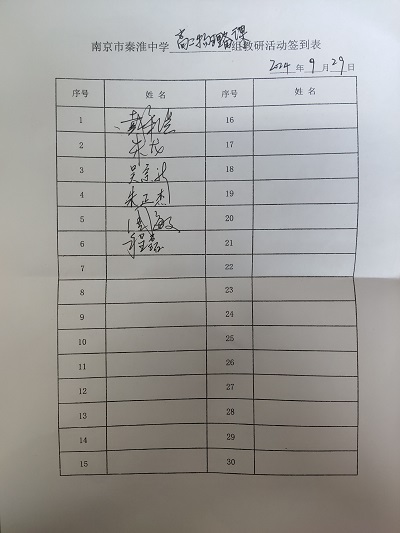 南京市秦淮中学 高二物理备课 组教研活动签到表
2024 年 9 月 29 日
序号 姓名 序号 姓名
1 16
2 朱龙 17
3 吴京新 18
4 朱正杰 19
5 周敏 20
6 程磊 21
7 22
8 23
9 24
10 25
11 26
12 27
13 28
14 29
15 30